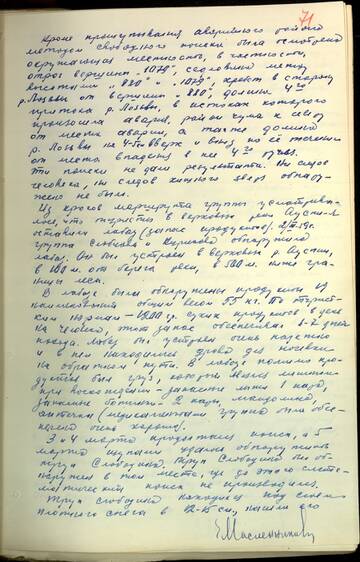 71
Кроме прощупывания аварийного района
методом свободного поиска была осмотрена
окружающая местность, в частности,
отрог вершины "1079", седловина между
высотами "880" и "1079", хребет в сторону
р. Лозьвы от вершины "880", долина 4го
притока р. Лозьвы, в истоках которого
произошла авария, район чума к северу
от места аварии, а также долина
р. Лозьвы на 4-5 км вверх и вниз по её течению
от места впадения в неё 4го ручья.
Эти поиски не дали результата. Ни следов
человека, ни следов хищного зверя обнару-
жено не было.
Из кроков маршрута группы усматрива-
лось, что туристы в верховьях реки Ауспи-я
оставили лабаз (запас продуктов). 2/III-59 г.
группа Слобцова и Курикова обнаружила
лабаз. Он был устроен в верховьях р. Ауспии,
в 100 м. от берега реки, в 500 м. ниже гра-
ницы леса.
В лабазе были обнаружены продукты 19
наименований общим весом 55 кг. По турист-
ским нормам - 1000 гр. сухих продуктов в день
на человека, этот запас обеспечивал 6-7 дней
похода. Лабаз был устроен очень надежно
и в нем находились дрова для ночевки
на обратном пути. В лабазе помимо про-
дуктов был груз, который являлся лишним
при восхождении - запасные лыжи 1 пара,
запасные ботинки - 2 пары, мандолина,
аптечка (медикаментами группа была обес-
печена очень хорошо).
3 и 4 марта продолжались поиски, а 5
марта щупами удалось обнаружить
труп Слободина. Труп Слободина был об-
наружен в том месте, где до этого систе-
матический поиск не производился.
Труп Слободина находился под слоем
плотного снега в 12-15 см, нашли его
Е Масленников